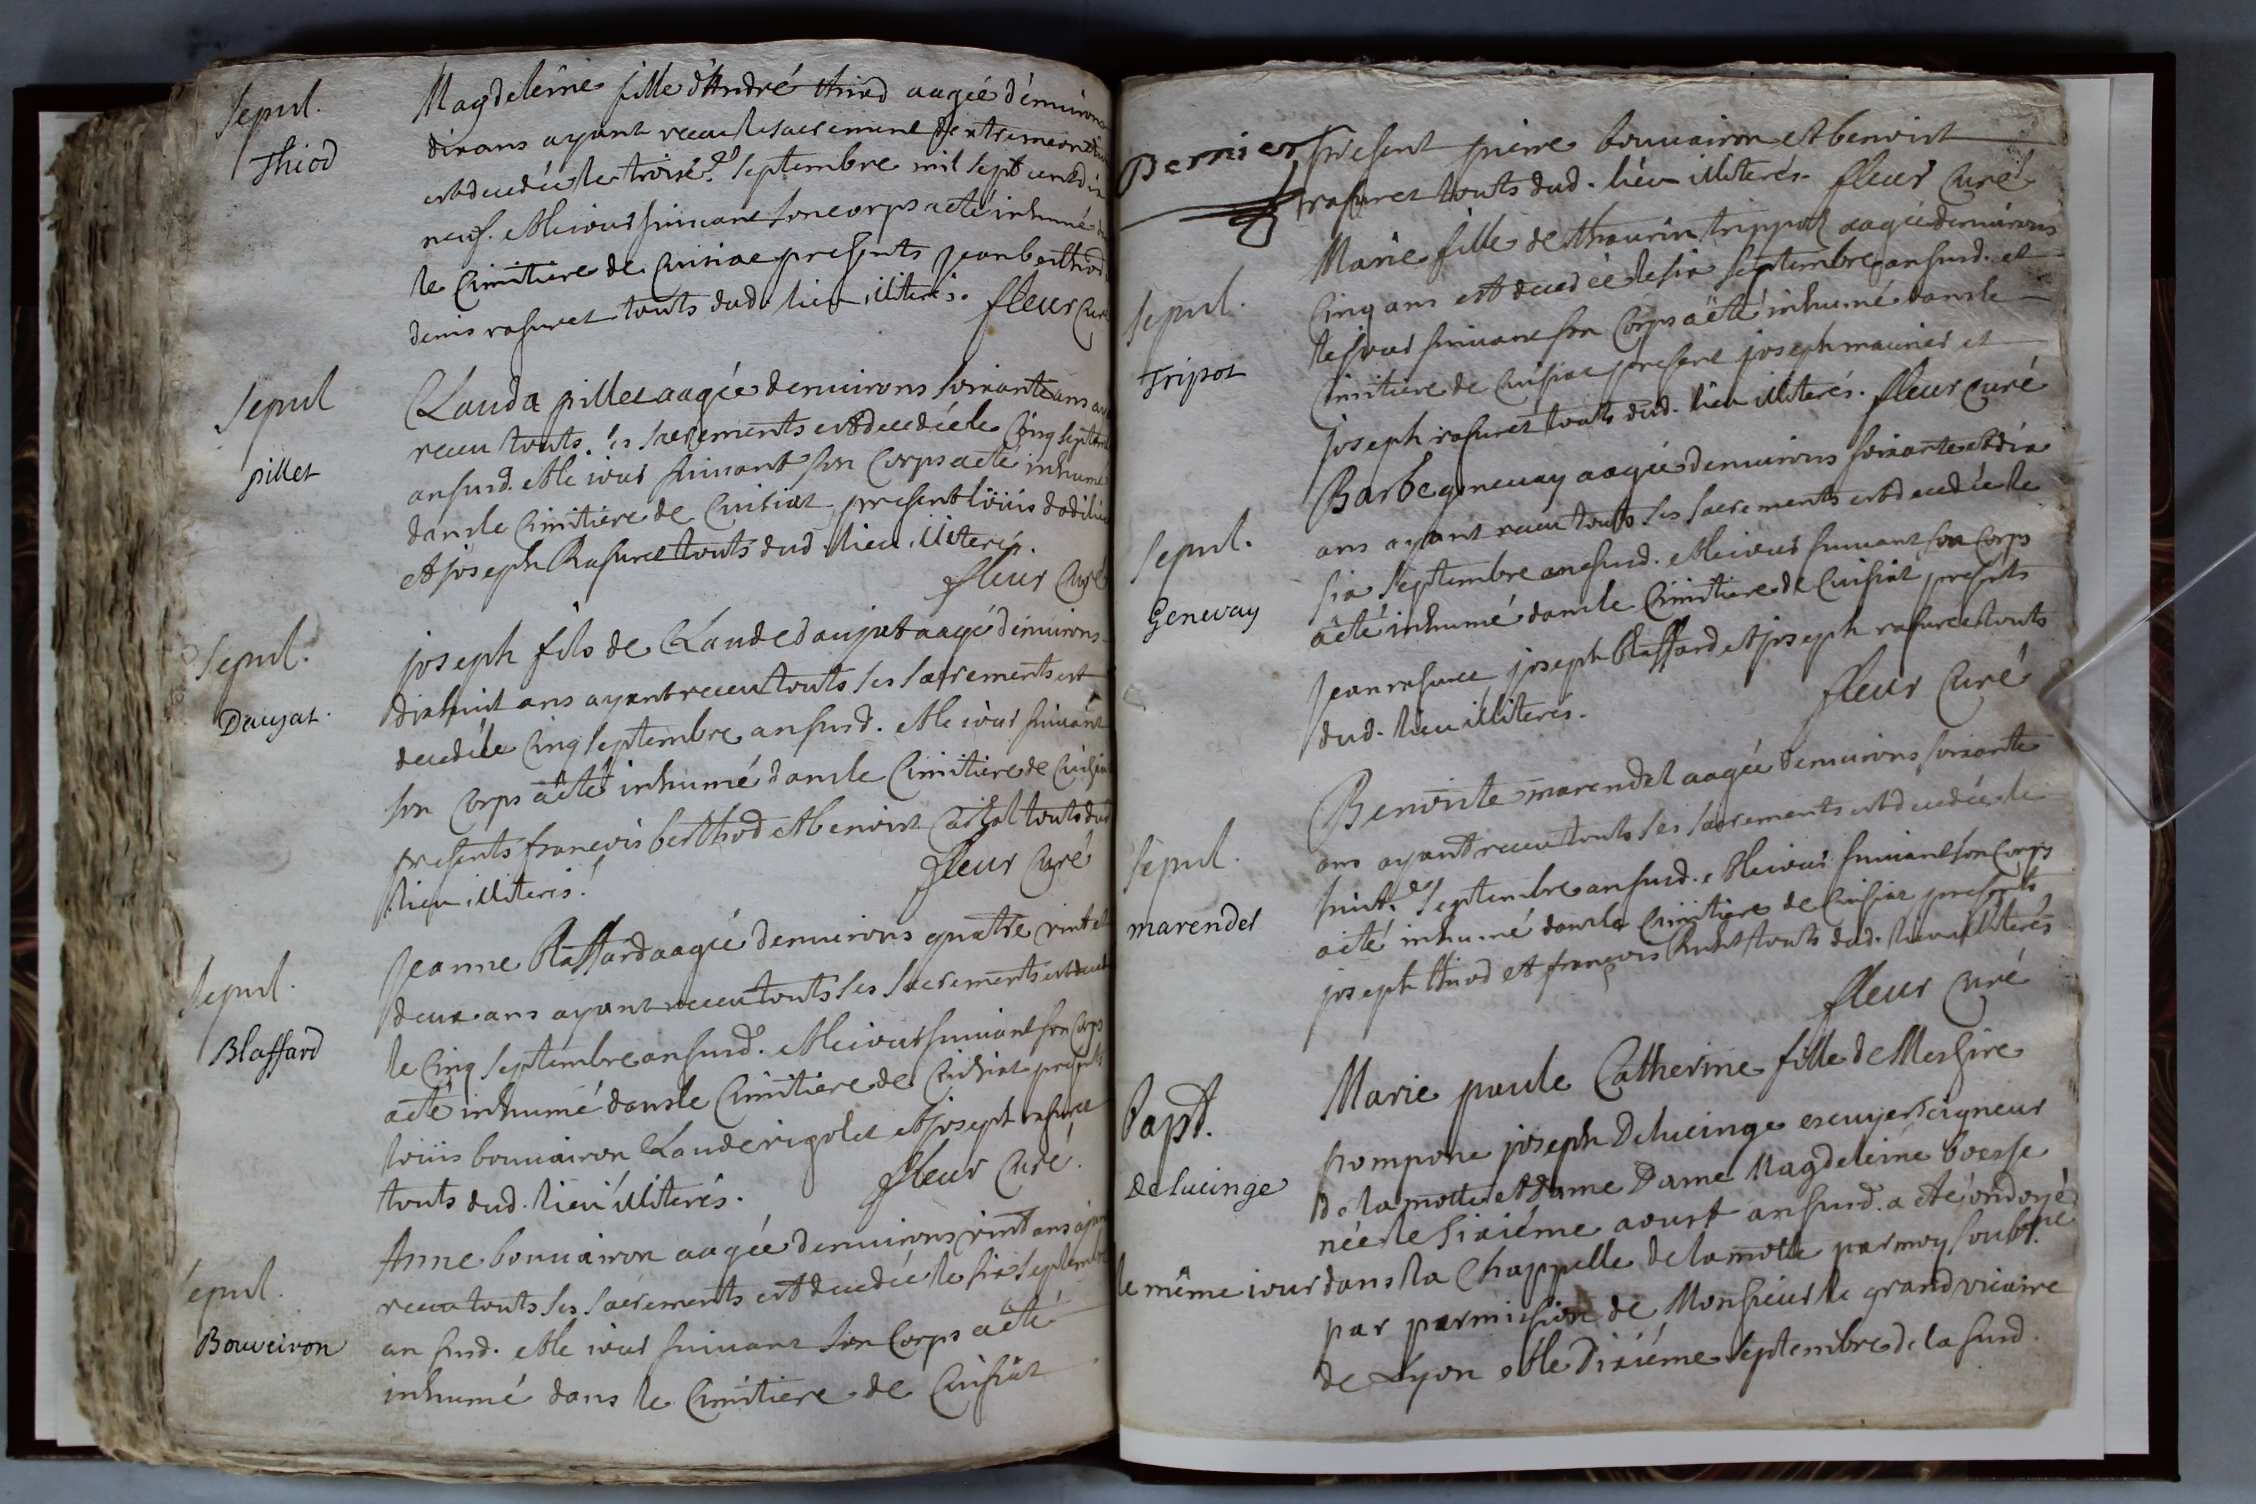 Sepul.
Thiod
Magdeleine fille d'André thiod aagée d'enuirons
dix ans ayant receu le sacrement
est decedée le troisé.e septembre mil sept cent dix
neuf. et le iour suiuant son corps a eté inhumé
le Cimitiere de Cuisiat presents jean berthod
denis rasuret touts dud. lieu illiterés. fleur Curé
Sepul
pillet
Clauda pillet aagée denuirons soixante ans
receu touts ses sacrements est decedée le Cinq septembre
an susd. et le iour suiuant son Corps a eté inhumé
dans le Cimitiere de Cuisiat present loüis
et joseph Rasuret touts dud. lieu illiterés.
fleur Curé
Sepul.
Daujat.
joseph fils de Claude daujat aagé denuirons
dixhuit ans ayant receu touts ses sacrements est
decedé le Cinq septembre an susd. et le iour suiuant
son Corps a eté inhumé dans le Cimitiere de Cuisiat
presents francois berthod et benoist touts dud
lieu illiterés.
fleur Curé
Sepul.
Blaffard
Jeanne blaffard aagée denuirons quatre vint et
deux ans ayant receu touts ses sacrements est
le Cinq septembre an susd. et le iour suiuant son Corps
a eté inhumé dans le Cimitiere de Cuisiat presents
loüis bouuairon Claude rigolet et joseph rasuret
touts dud. lieu illiterés. fleur Curé.
Sepul.
Bouveiron
Anne bouuairon aagée denuirons vint ans
receu touts ses sacrements est decedée le six septembre
an susd. et le iour suiuant son Corps a eté
inhumé dans le Cimitiere de Cuisiat
Dernier
present pierre bouuairon et benoist
rasuret touts dud. lieu illiterés. fleur Curé
Sepul.
Tripot
Marie fille de thaurin trippot aagée denuirons
Cinq ans est decedée le six septembre an susd. et
le iour suiuant son Corps a eté inhumé dans le
Cimitiere de Cuisiat present joseph maurier et
joseph rasuret touts dud. lieu illiterés. fleur Curé
Sepul.
Genevay
Barbe geneuay aagée denuirons soixante et dix
ans ayant receu touts ses sacrements est decedée le
six septembre an susd. et le iour suiuant son Corps
a eté inhumé dans le Cimitiere de Cuisiat presents
jean rasuret joseph blaffard et joseph rasuret touts
dud. lieu illiterés.
fleur Curé
Sepul.
marendet
Benoiste marendet aagée denuirons soixante
ans ayant receu touts ses sacrements est decedée le
huict.e septembre an susd. et le iour suiuant son Corps
a eté inhumé dans le Cimitiere de Cuisiat presents
joseph thiod et françois touts dud. lieu illiterés
fleur Curé
Bapt.
Delucinge
Marie paule Catherine fille de Messire
pompone joseph Delucinge escuyer seigneur
de la motte et dame Dame Magdeleine boesse
née le sixiéme aoust an susd. a eté ondoyé
le même iour dans la Chappelle de la motte par moy soubs.né
par permission de Monsieur le grand vicaire
de Lyon et le Dixiéme septembre de la susd.